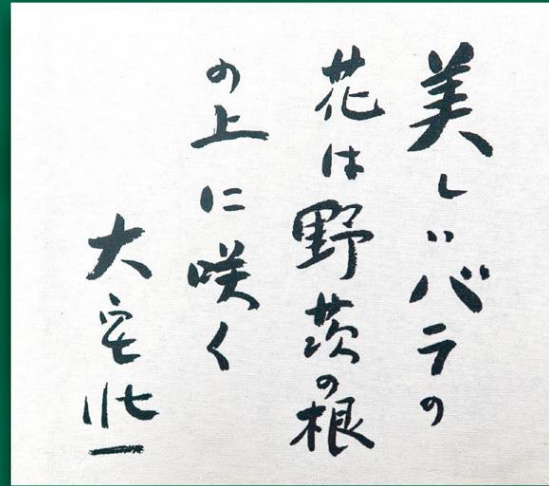 美しいバラの
花は野茨の根
の上に咲く
大宅壯一